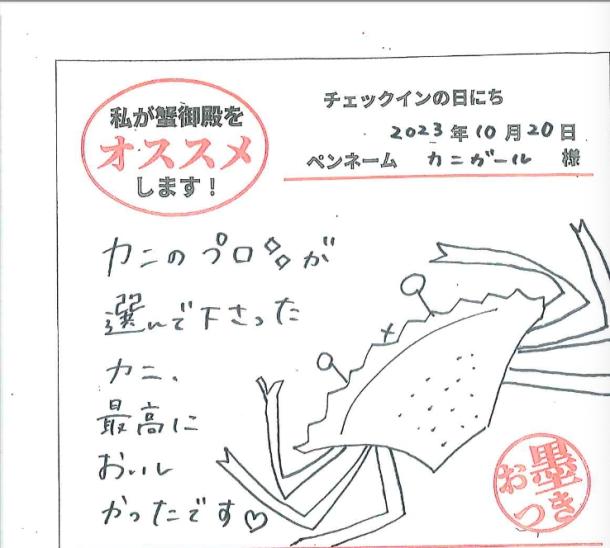 私が蟹御殿を
オススメ
します！
チェックインの日にち
2023年10月20日
ペンネーム カニガール 様
カニのプロが
選んで下さった
カニ、
最高に
おいし
かったです♡
お墨つき